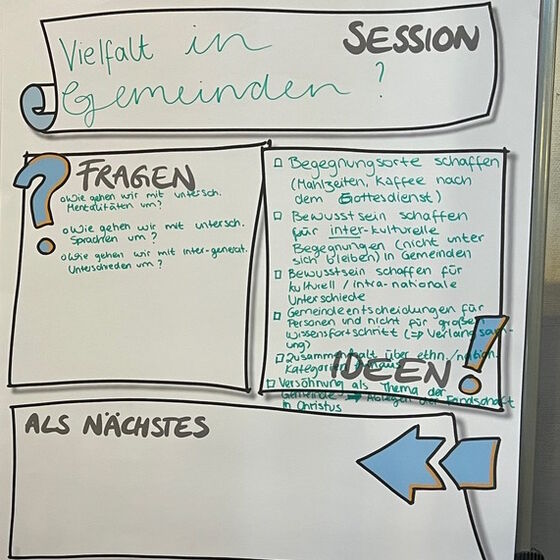 SESSION
Vielfalt in
Gemeinden ?
? FRAGEN
Wie gehen wir mit untersch.
Mentalitäten um?
Wie gehen wir mit untersch.
Sprachen um?
Wie gehen wir mit inter-generat.
Unterschieden um?
Begegnungsorte schaffen
(Mahlzeiten, Kaffee nach
dem Gottesdienst)
Bewusstsein schaffen
für inter-kulturelle
Begegnungen (nicht unter
sich bleiben) in Gemeinden
Bewusstsein schaffen für
kulturell / intra-nationale
Unterschiede
Gemeindeentscheidungen für
Personen und nicht für großen
Wissensfortschritt (=> Verlangsam-
ung)
Zusammenhalt über ethn./nation.
Kategorien hinaus
IDEEN !
Versöhnung als Thema der
Gemeinde => Ablegen der Feindschaft
in Christus
ALS NÄCHSTES